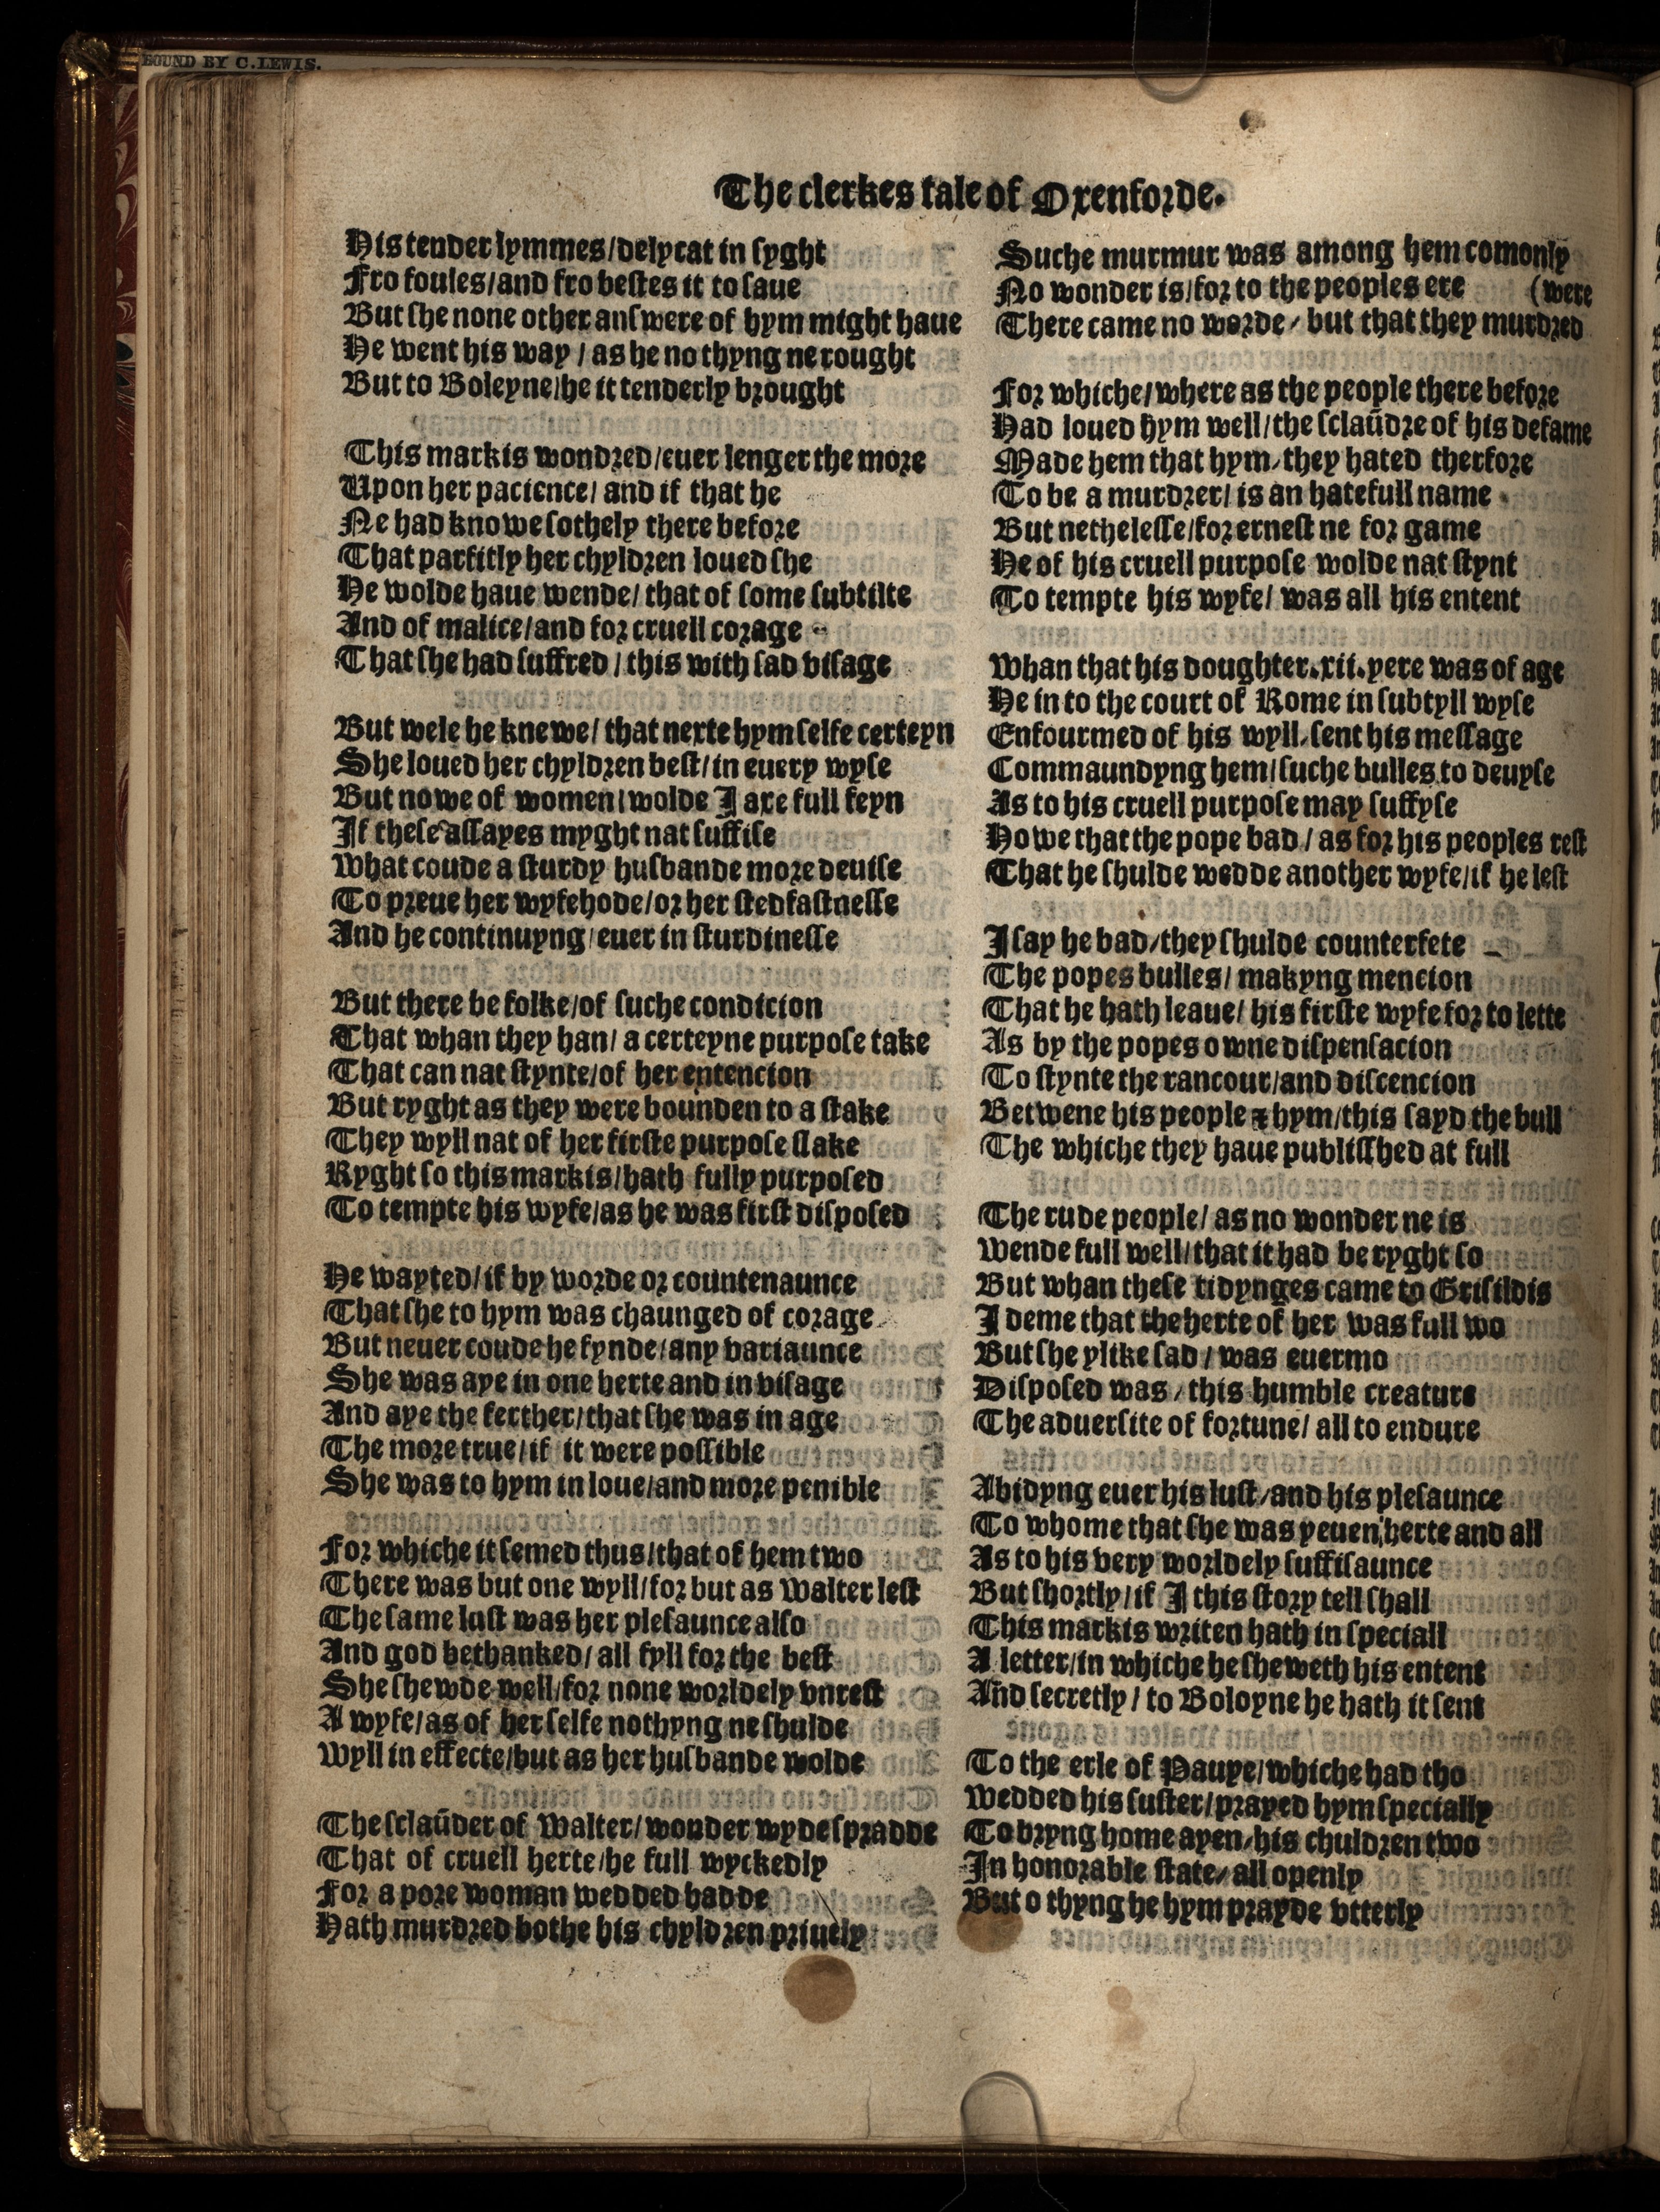 BOUND BY C.LEWIS.
The clerkes tale of Oxenforde.
His tender lymmes/delycat in ſyght
Fro foules/and fro beſtes it to ſaue
But ſhe none other anſwere of hym might haue
He went his way / as he no thyng ne rought
But to Boleyne/he it tenderly brought
This markis wondred/euer lenger the more
Upon her pacience/ and if that he
Ne had knowe ſothely there before
That parfitly her chyldren loued ſhe
He wolde haue wende/ that of ſome ſubtilte
And of malice/and for cruell corage
That ſhe had ſuffred / this with ſad viſage
But wele he knewe/ that nexte hym ſelfe certeyn
She loued her chyldren beſt/in euery wyſe
But nowe of women/wolde I axe full feyn
If theſe aſſayes myght nat ſuffiſe
What coude a ſturdy huſbande more deuiſe
To preue her wyfehode/or her ſtedfaſtneſſe
And he continuyng/euer in ſturdineſſe
But there be folke/of ſuche condicion
That whan they han/ a certeyne purpoſe take
That can nat ſtynte/of her entencion
But ryght as they were bounden to a ſtake
They wyll nat of her firſte purpoſe ſlake
Ryght ſo this markis/hath fully purpoſed
To tempte his wyfe/as he was firſt diſpoſed
He wayted/if by worde or countenaunce
That ſhe to hym was chaunged of corage
But neuer coude he fynde/any variaunce
She was aye in one herte and in viſage
And aye the ferther/that ſhe was in age
The more true/if it were poſſible
She was to hym in loue/and more penible
For whiche it ſemed thus/that of hem two
There was but one wyll/for but as Walter leſt
The ſame luſt was her pleſaunce alſo
And god bethanked/ all fyll for the beſt
She ſhewde well/for none worldely vnreſt
A wyfe/as of her ſelfe nothyng ne ſhulde
Wyll in effecte/but as her huſbande wolde
The ſclaūder of Walter/wonder wyde ſpradde
That of cruell herte/he full wyckedly
For a pore woman wedded hadde
Hath murdred bothe his chyldren priuely
Suche murmur was among hem comonly
No wonder is/for to the peoples ere (were
There came no worde/ but that they murdred
For whiche/where as the people there before
Had loued hym well/the ſclaūdre of his defame
Made hem that hym/they hated therfore
To be a murdrer/ is an hatefull name
But netheleſſe/for erneſt ne for game
He of his cruell purpoſe wolde nat ſtynt
To tempte his wyfe/ was all his entent
Whan that his doughter.xii.yere was of age
He in to the court of Rome in ſubtyll wyſe
Enfourmed of his wyll/ſent his meſſage
Commaundyng hem/ſuche bulles to deuyſe
As to his cruell purpoſe may ſuffyſe
Howe that the pope bad / as for his peoples reſt
That he ſhulde wedde another wyfe/if he leſt
I ſay he bad/they ſhulde counterfete
The popes bulles/ makyng mencion
That he hath leaue/ his firſte wyfe for to lette
As by the popes owne diſpenſacion
To ſtynte the rancour/and diſcencion
Betwene his people ⁊ hym/this ſayd the bull
The whiche they haue publiſſhed at full
The rude people/ as no wonder ne is
Wende full well/that it had be ryght ſo
But whan theſe tidynges came to Griſildis
I deme that the herte of her was full wo
But ſhe ylike ſad / was euermo
Diſpoſed was/this humble creature
The aduerſite of fortune/ all to endure
Abidyng euer his luſt/and his pleſaunce
To whome that ſhe was yeuen/herte and all
As to his very worldely ſuffiſaunce
But ſhortly/if I this ſtory tell ſhall
This markis writen hath in ſpeciall
A letter/in whiche he ſheweth his entent
And ſecretly / to Boloyne he hath it ſent
To the erle of Pauye/whiche had tho
Wedded his ſuſter/prayed hym ſpecially
To bryng home ayen/his chuldren two
In honorable ſtate/all openly
But o thyng he hym prayde vtterly